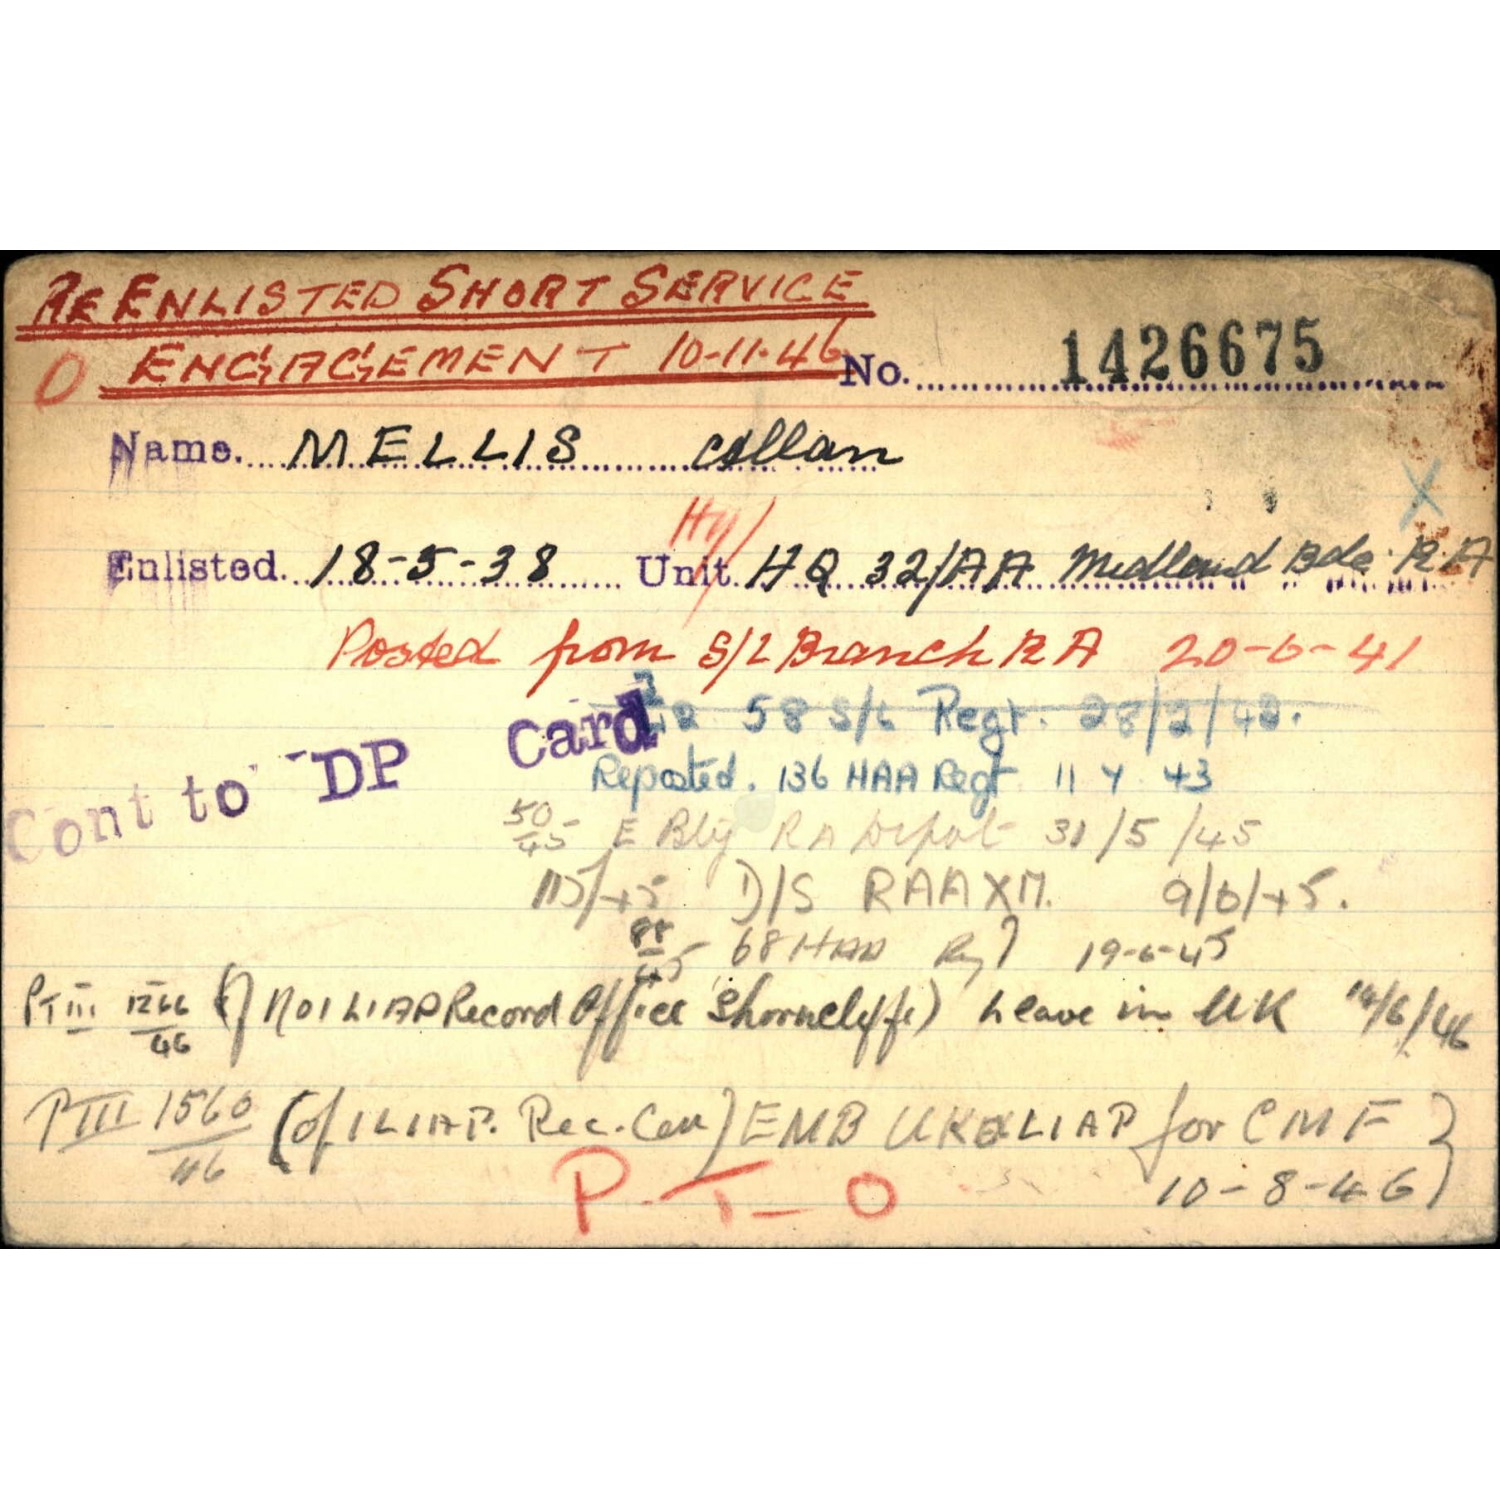 RE ENLISTED SHORT SERVICE
O ENGAGEMENT 10-11-46 No. 1426675
Name. MELLIS Allan
Enlisted. 18-5-38 Unit HQ 32/AA Midland Bde. R.A
Posted from S/L Branch RA 20-6-41
58 S/L Regt. 28/2/42.
Cont to DP Card
Reposted. 136 HAA Regt 11 4 43
50/45 E Bty RA Depot 31/5/45
115/45 D/S RAAXM. 9/6/45.
88/45 68 HAA Rgt 19-6-45
PT III 1266/46 (of No1 LIAP Record Office Shorncliffe) Leave in UK 14/6/46
PT III 1560/46 (of 1 LIAP. Rec. Cen) EMB UK LIAP for CMF
10-8-46
P.T.O